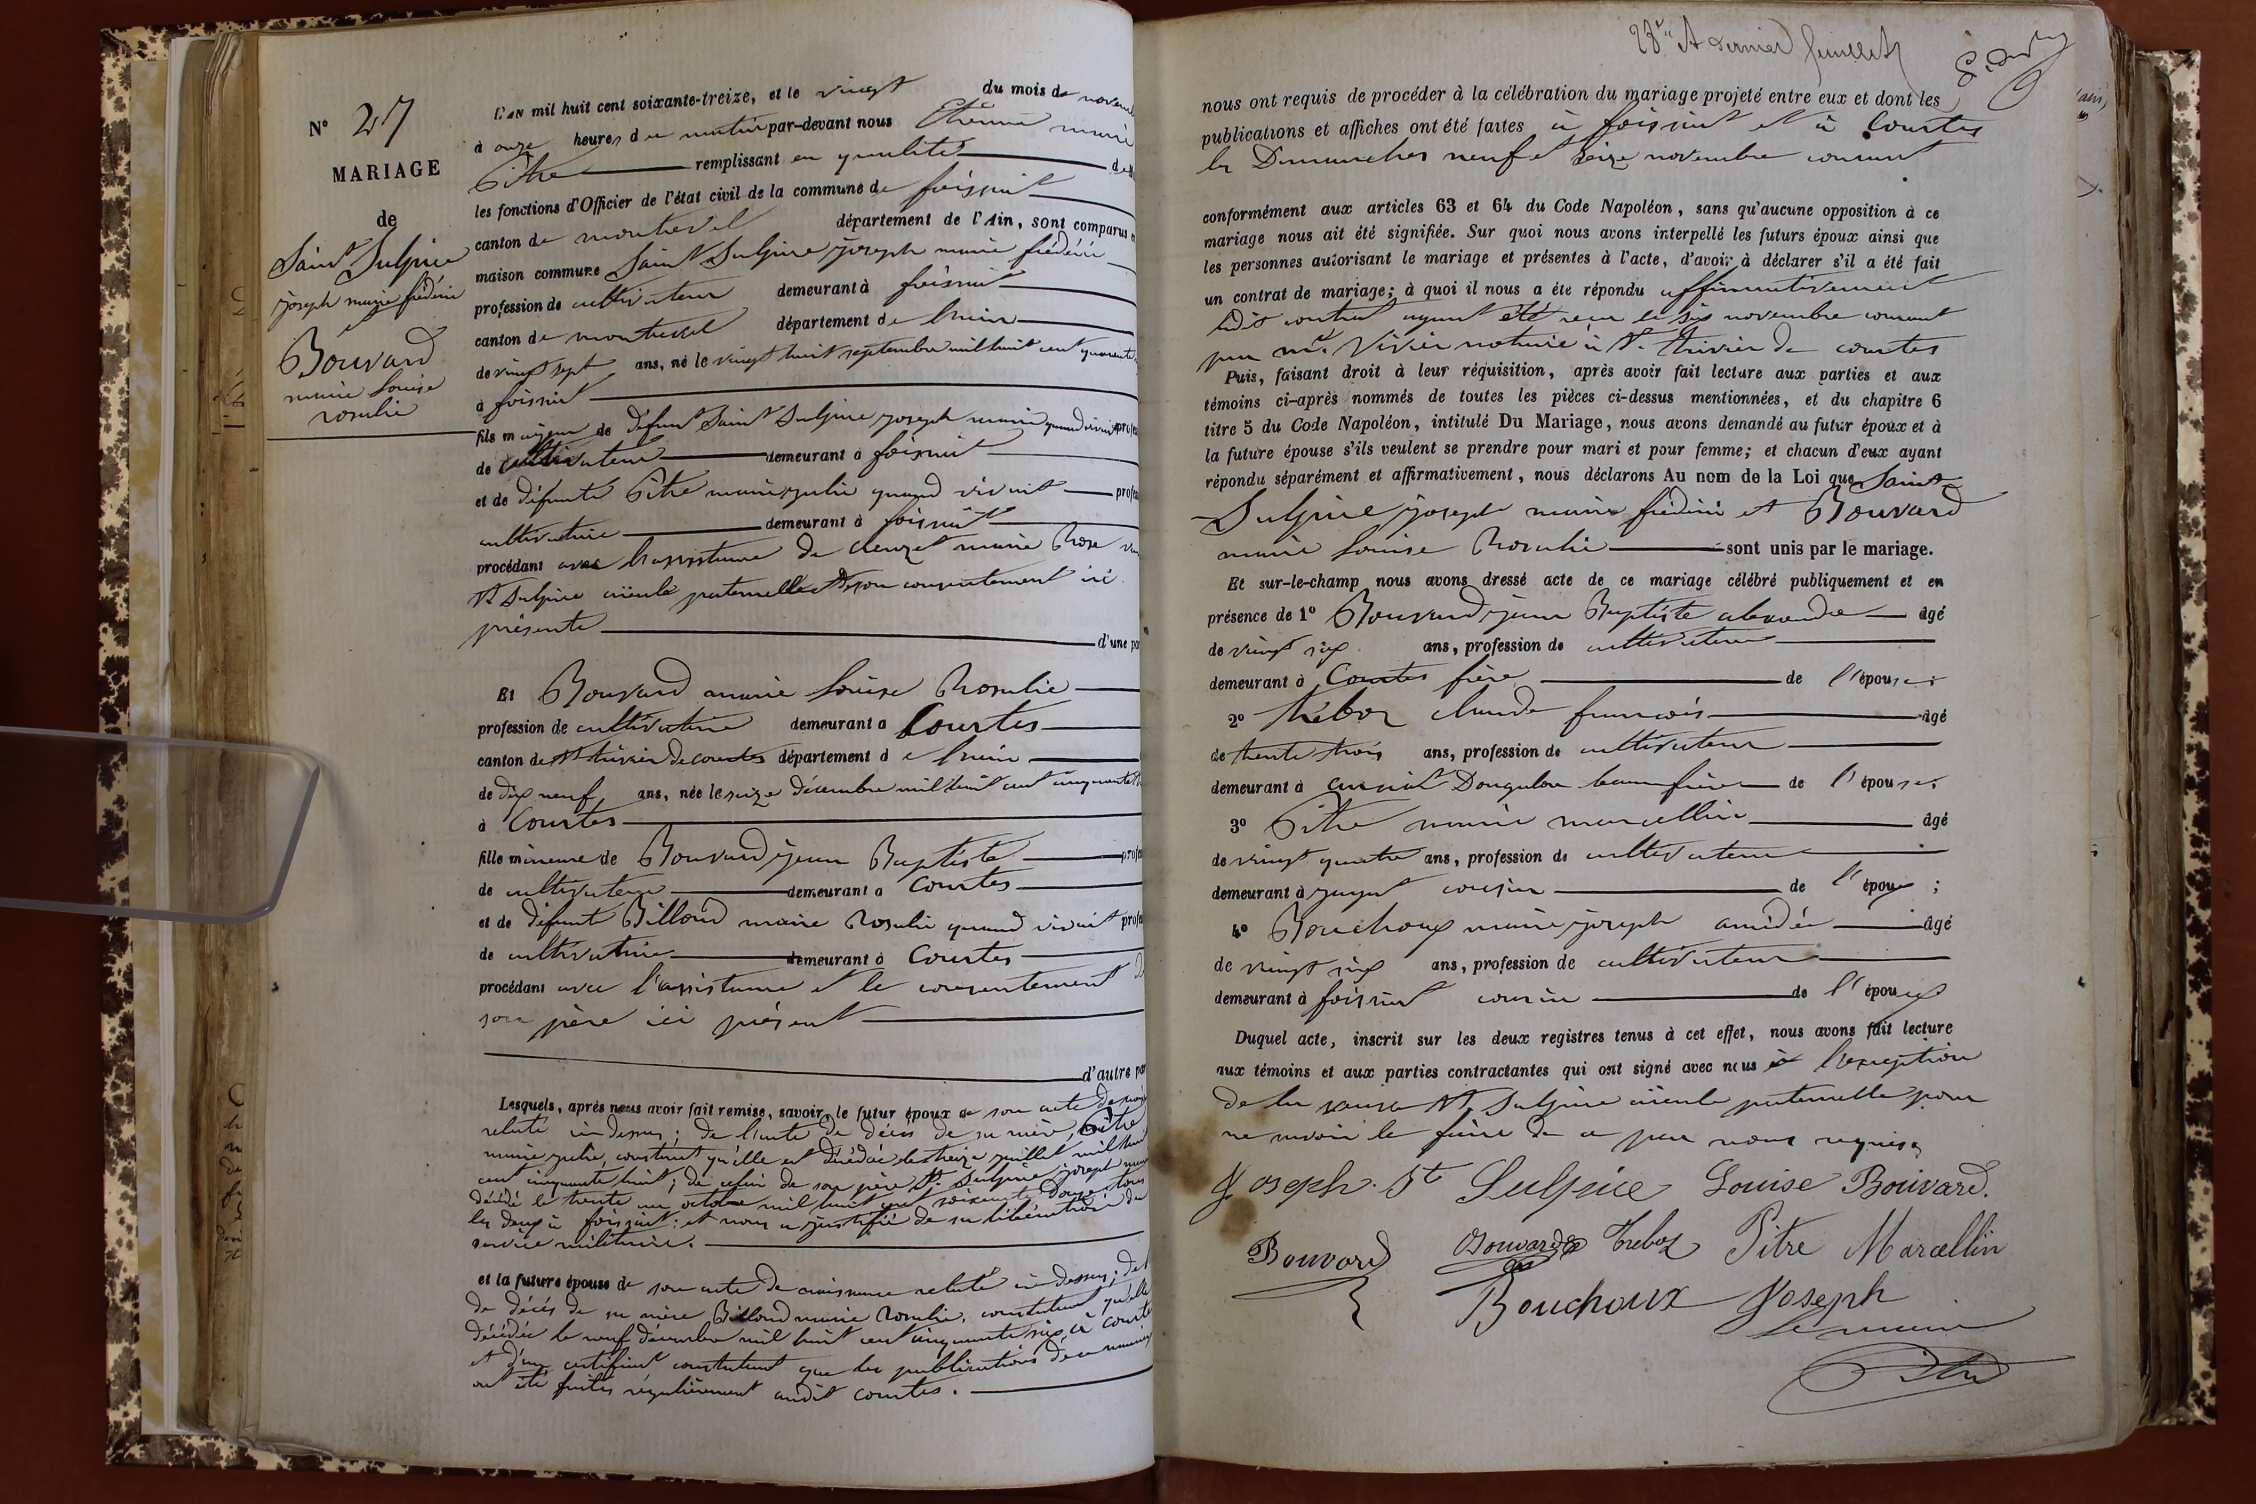 N° 27
MARIAGE
de
Saint Sulpice
joseph marie frédéric
et
Bouvard
marie louise
rosalie
L'AN mil huit cent soixante-treize, et le vingt du mois de
à onze heures du matin par-devant nous Etienne marie
Pitre remplissant en qualité de
les fonctions d'Officier de l'état civil de la commune de foissiat
canton de montrevel département de l'Ain, sont comparus
maison commune Saint Sulpice joseph marie frédéric
profession de cultivateur demeurant à foissiat
canton de montrevel département de l'ain
de vingt sept ans, né le vingt huit septembre mil huit cent quarante
à foissiat
fils majeur de défunt Saint Sulpice joseph marie quand vivait
de cultivateur demeurant à foissiat
et de défunte Pitre marie julie quand vivait
cultivatrice demeurant à foissiat
procédant avec l'assistance de marie Rose
St Sulpice aïeule paternelle et son consentement ici
présente d'une
Et Bouvard marie louise Rosalie
profession de cultivatrice demeurant à Courtes
canton de St trivier de courtes département de l'ain
de dix neuf ans, née le seize décembre mil huit cent cinquante
à Courtes
fille mineure de Bouvard jean Baptiste
de cultivateur demeurant à Courtes
et de défunte Billoud marie Rosalie quand vivait
de cultivatrice demeurant à Courtes
procédant avec l'assistance et le consentement de
son père ici présent
d'autre
Lesquels, après nous avoir fait remise, savoir, le futur époux de son acte de
relaté ci dessus ; de l'acte de décès de sa mère, Pitre
marie julie, constatant qu'elle est décédée le treize juillet mil huit
cent cinquante huit ; de celui de son père St Sulpice joseph marie
décédé le trente un octobre mil huit cent soixante douze, tous
les deux à foissiat ; et nous a justifié de sa libération du
service militaire.
et la future épouse de son acte de naissance relaté ci dessus ; de
de décès de sa mère Billoud marie rosalie, constatant qu'elle
décédée le neuf décembre mil huit cent cinquante six à Courtes
et d'un certificat constatant que les publications de ce mariage
ont été faites régulièrement audit courtes.
28e et dernier feuillet
nous ont requis de procéder à la célébration du mariage projeté entre eux et dont les
publications et affiches ont été faites à foissiat et à Courtes
les Dimanches neuf et seize novembre courant
conformément aux articles 63 et 64 du Code Napoléon, sans qu'aucune opposition à ce
mariage nous ait été signifiée. Sur quoi nous avons interpellé les futurs époux ainsi que
les personnes autorisant le mariage et présentes à l'acte, d'avoir à déclarer s'il a été fait
un contrat de mariage ; à quoi il nous a été répondu affirmativement
ledit contrat ayant été reçu le six novembre courant
par me. Vivier notaire à St. trivier de courtes
Puis, faisant droit à leur réquisition, après avoir fait lecture aux parties et aux
témoins ci-après nommés de toutes les pièces ci-dessus mentionnées, et du chapitre 6
titre 5 du Code Napoléon, intitulé Du Mariage, nous avons demandé au futur époux et à
la future épouse s'ils veulent se prendre pour mari et pour femme ; et chacun d'eux ayant
répondu séparément et affirmativement, nous déclarons Au nom de la Loi que Saint
Sulpice joseph marie frédéric et Bouvard
marie louise Rosalie sont unis par le mariage.
Et sur-le-champ nous avons dressé acte de ce mariage célébré publiquement et en
présence de 1° Bouvard jean Baptiste alexandre âgé
de vingt six ans, profession de cultivateur
demeurant à Courtes frère de l'épouse
2° tréboz claude françois âgé
de trente trois ans, profession de cultivateur
demeurant à curciat Dongalon beau frère de l'épouse.
3° Pitre marie marcellin âgé
de vingt quatre ans, profession de cultivateur
demeurant à jayat cousin de l'époux ;
4° Bouchoux marie joseph amédée âgé
de vingt six ans, profession de cultivateur
demeurant à foissiat cousin de l'époux
Duquel acte, inscrit sur les deux registres tenus à cet effet, nous avons fait lecture
aux témoins et aux parties contractantes qui ont signé avec nous à l'exception
de la veuve St Sulpice aïeule paternelle pour
ne savoir le faire de ce par nous requise
Joseph. St Sulpice Louise Bouvard.
Bouvard Bouvard Treboz Pitre Marcellin
Bouchoux Joseph
le maire
Pitre